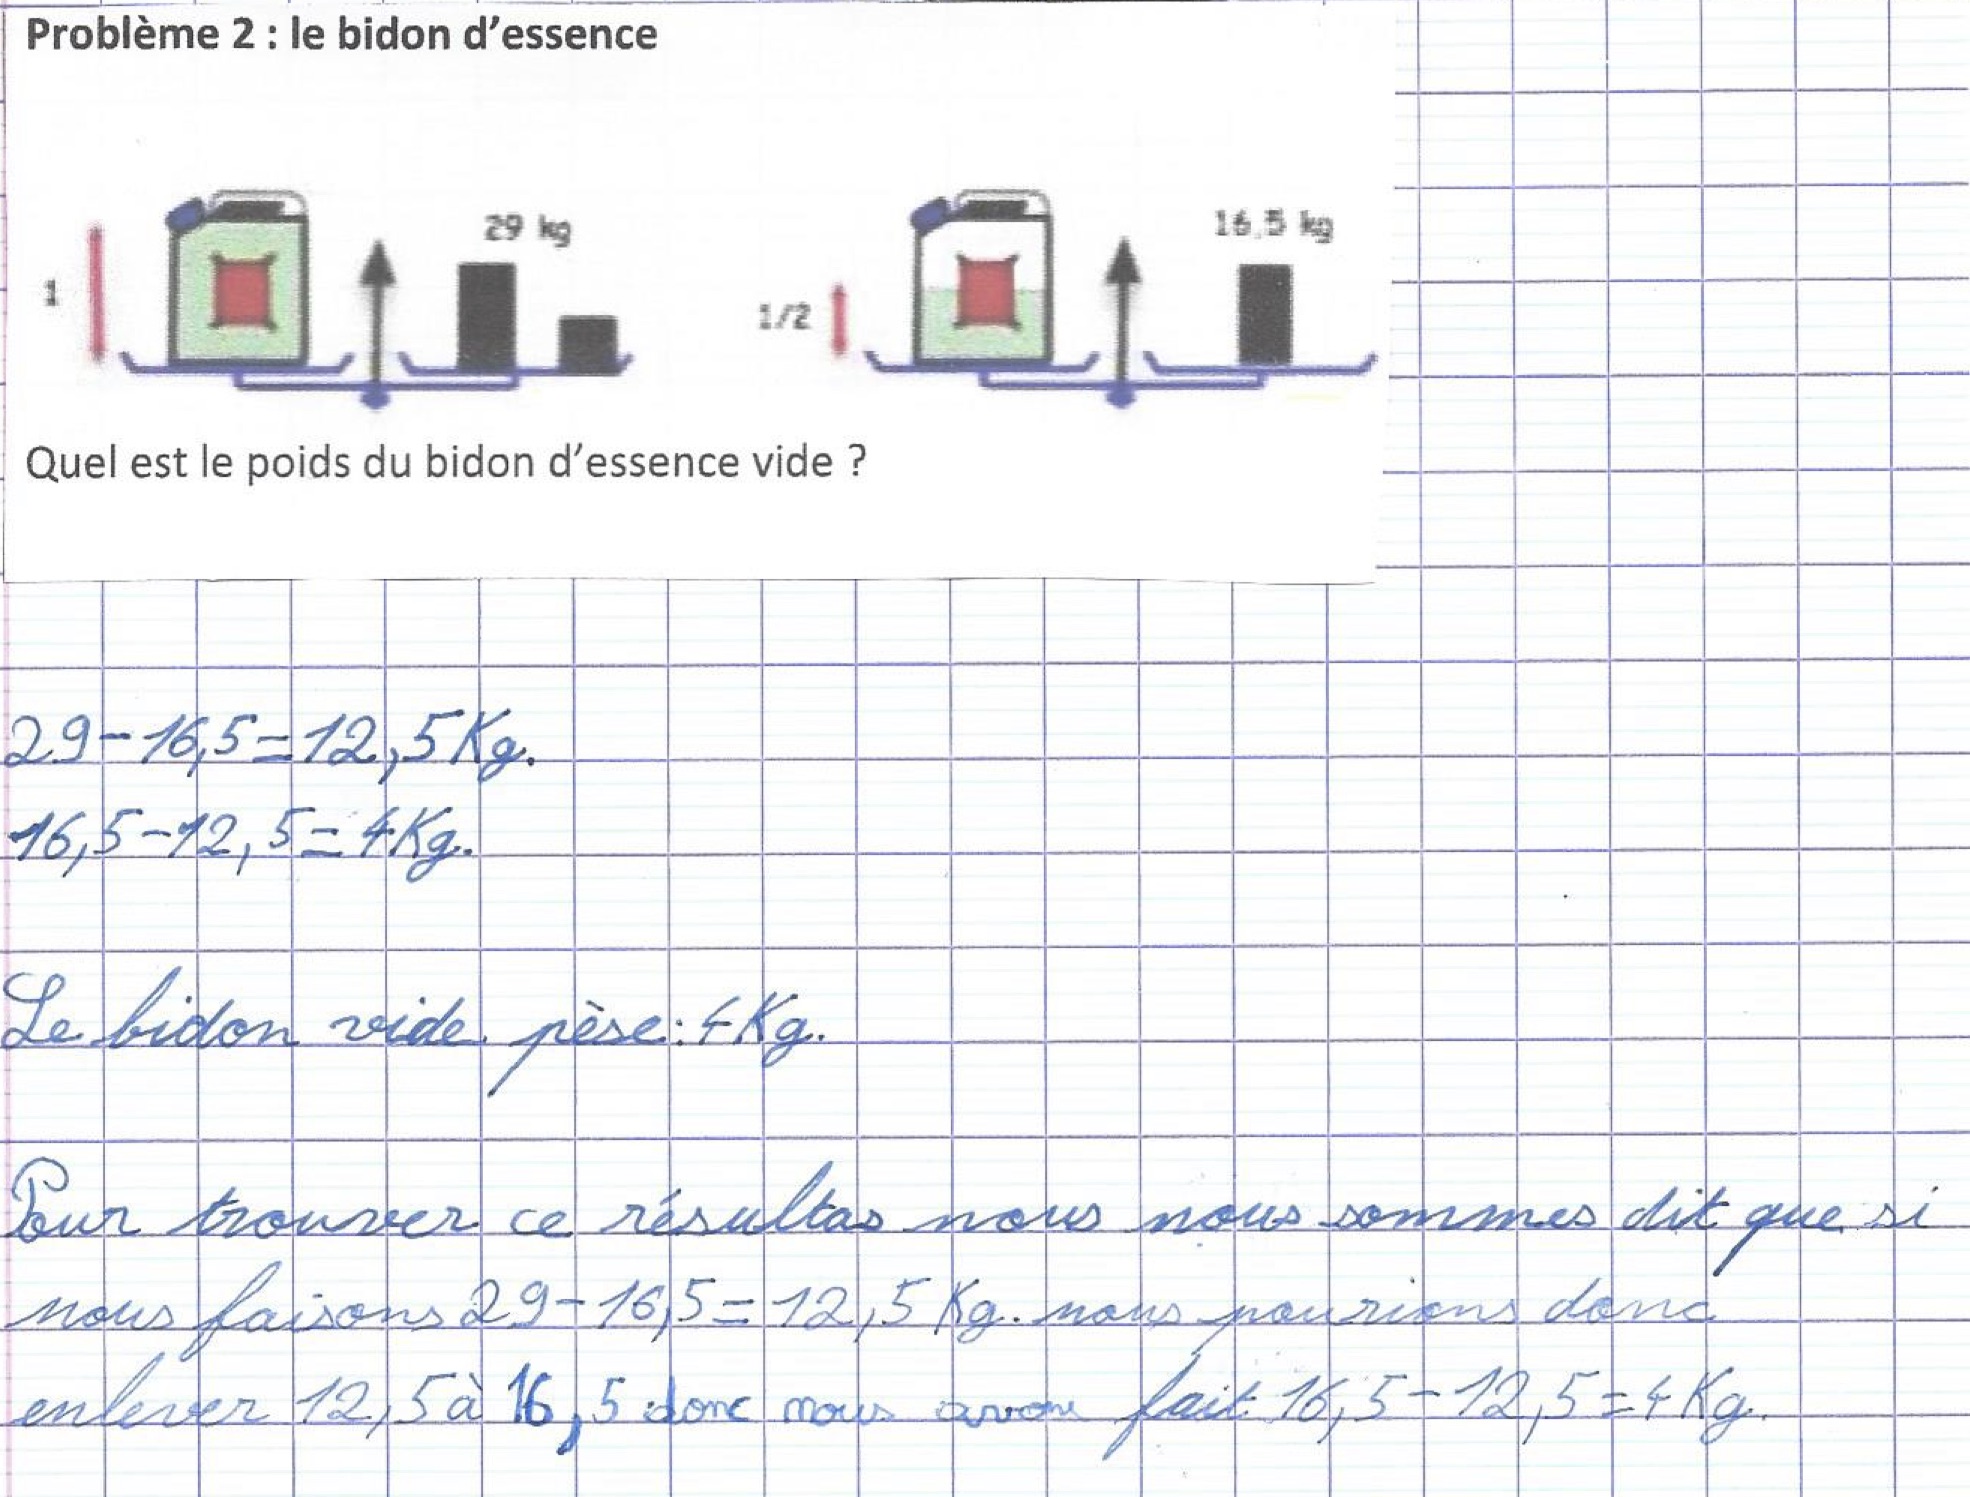 Problème 2 : le bidon d'essence
29 kg
16,5 kg
1
1/2
Quel est le poids du bidon d'essence vide ?
29-16,5=12,5Kg.
16,5-12,5=4Kg.
Le bidon vide pèse: 4Kg.
Pour trouver ce résultas nous nous sommes dit que si
nous faisons 29-16,5=12,5 Kg. nous pourions donc
enlever 12,5 à 16,5 donc nous avons fait 16,5-12,5=4Kg.